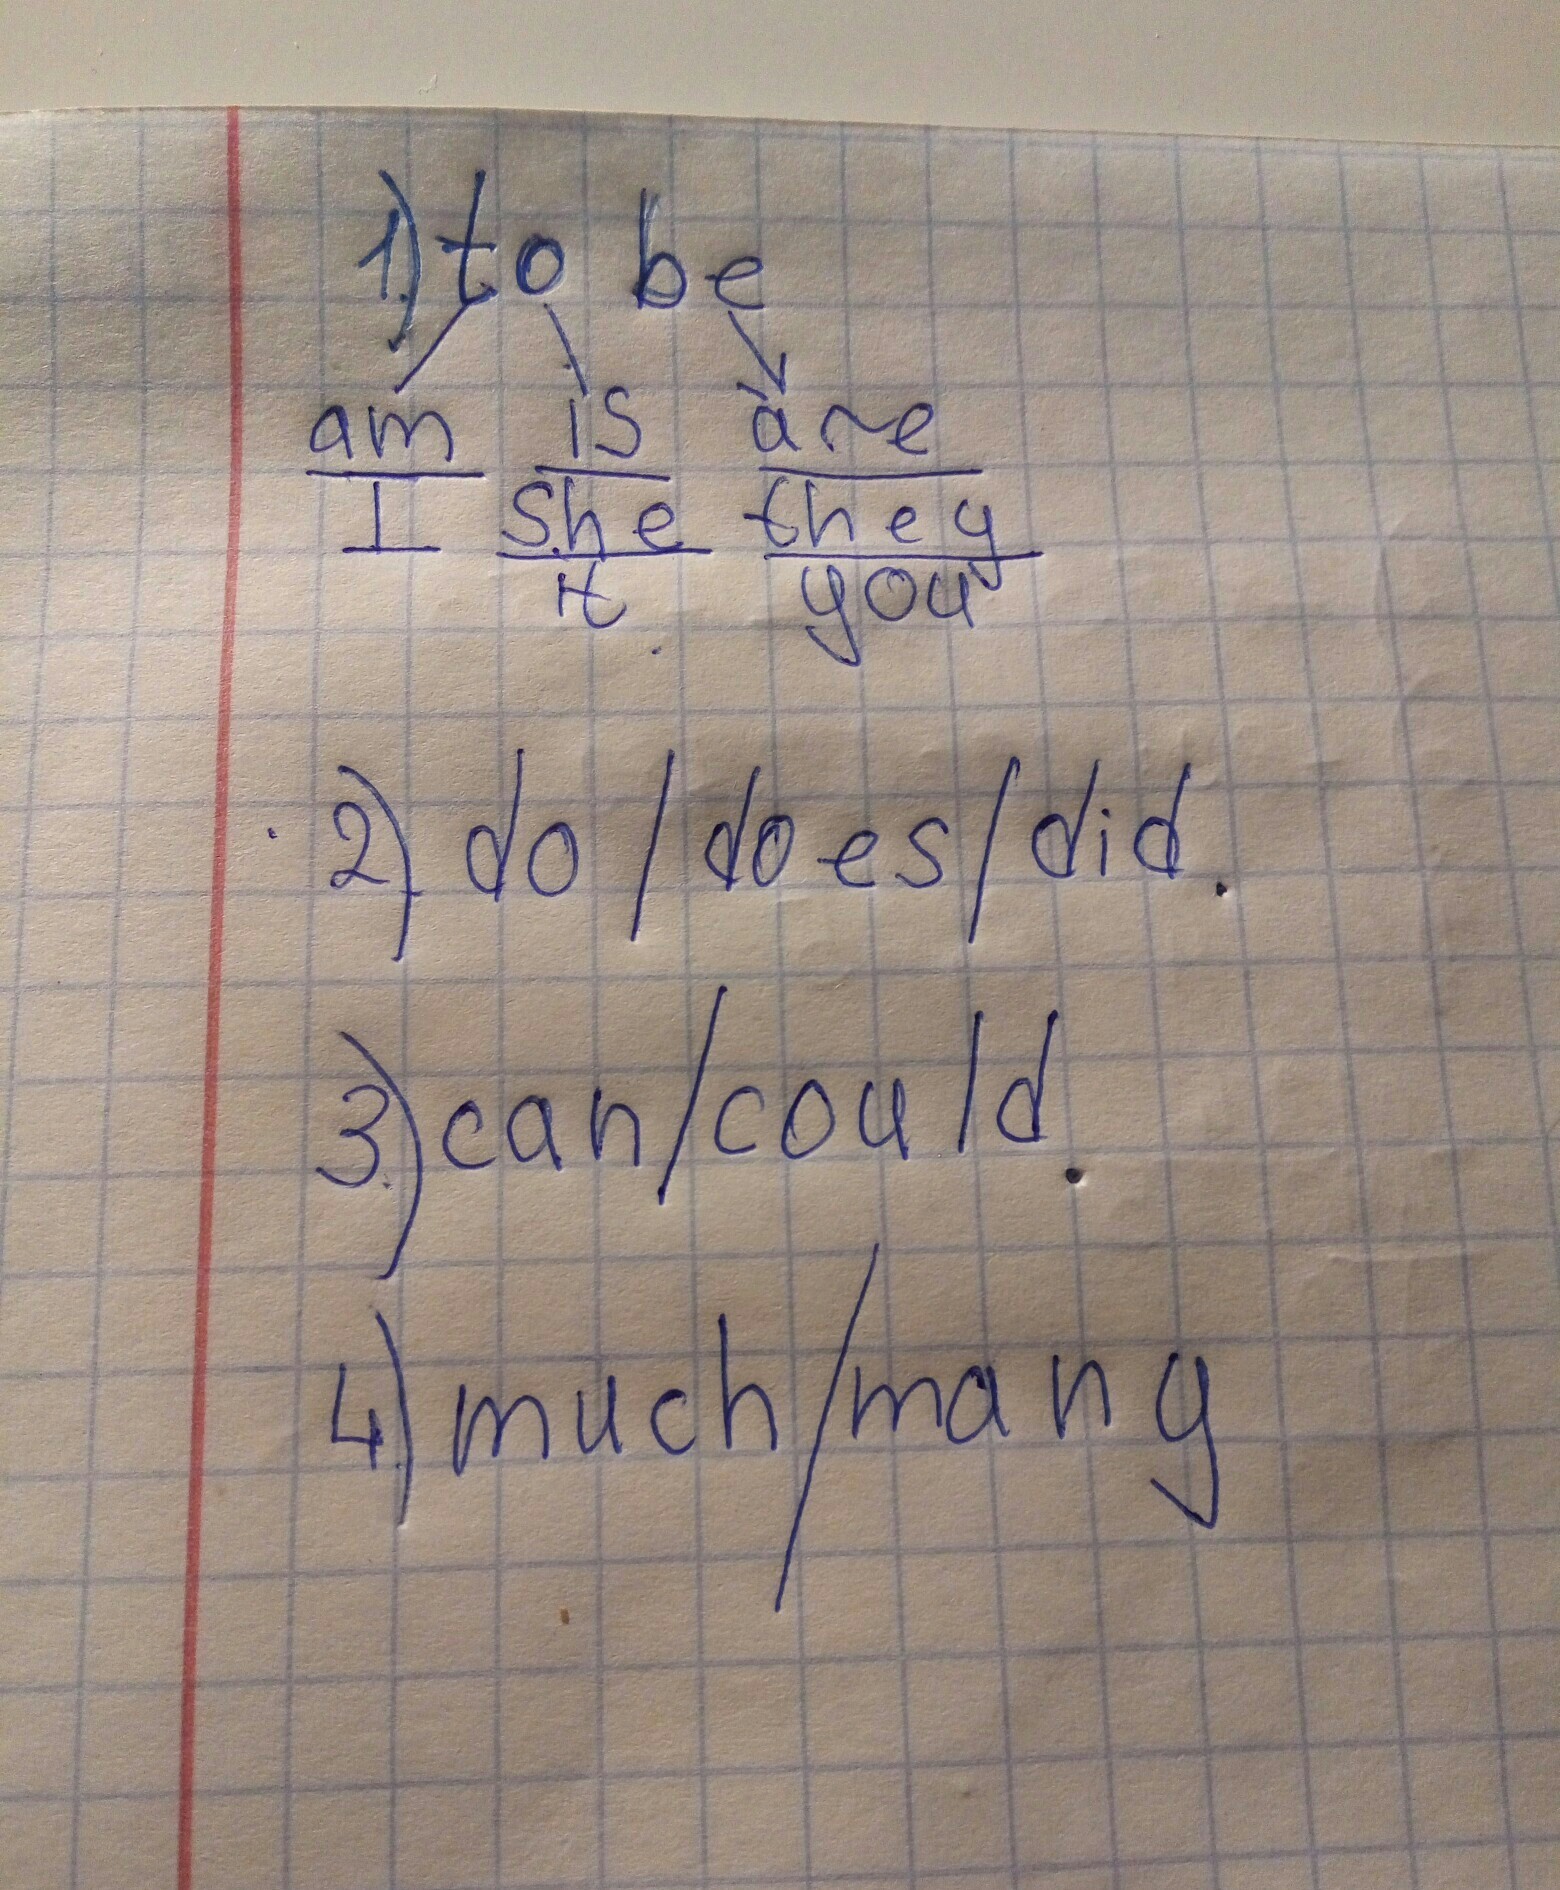 1.) to be
am is are
I she they
it you
2) do / does / did.
3.) can / could.
4.) much / many